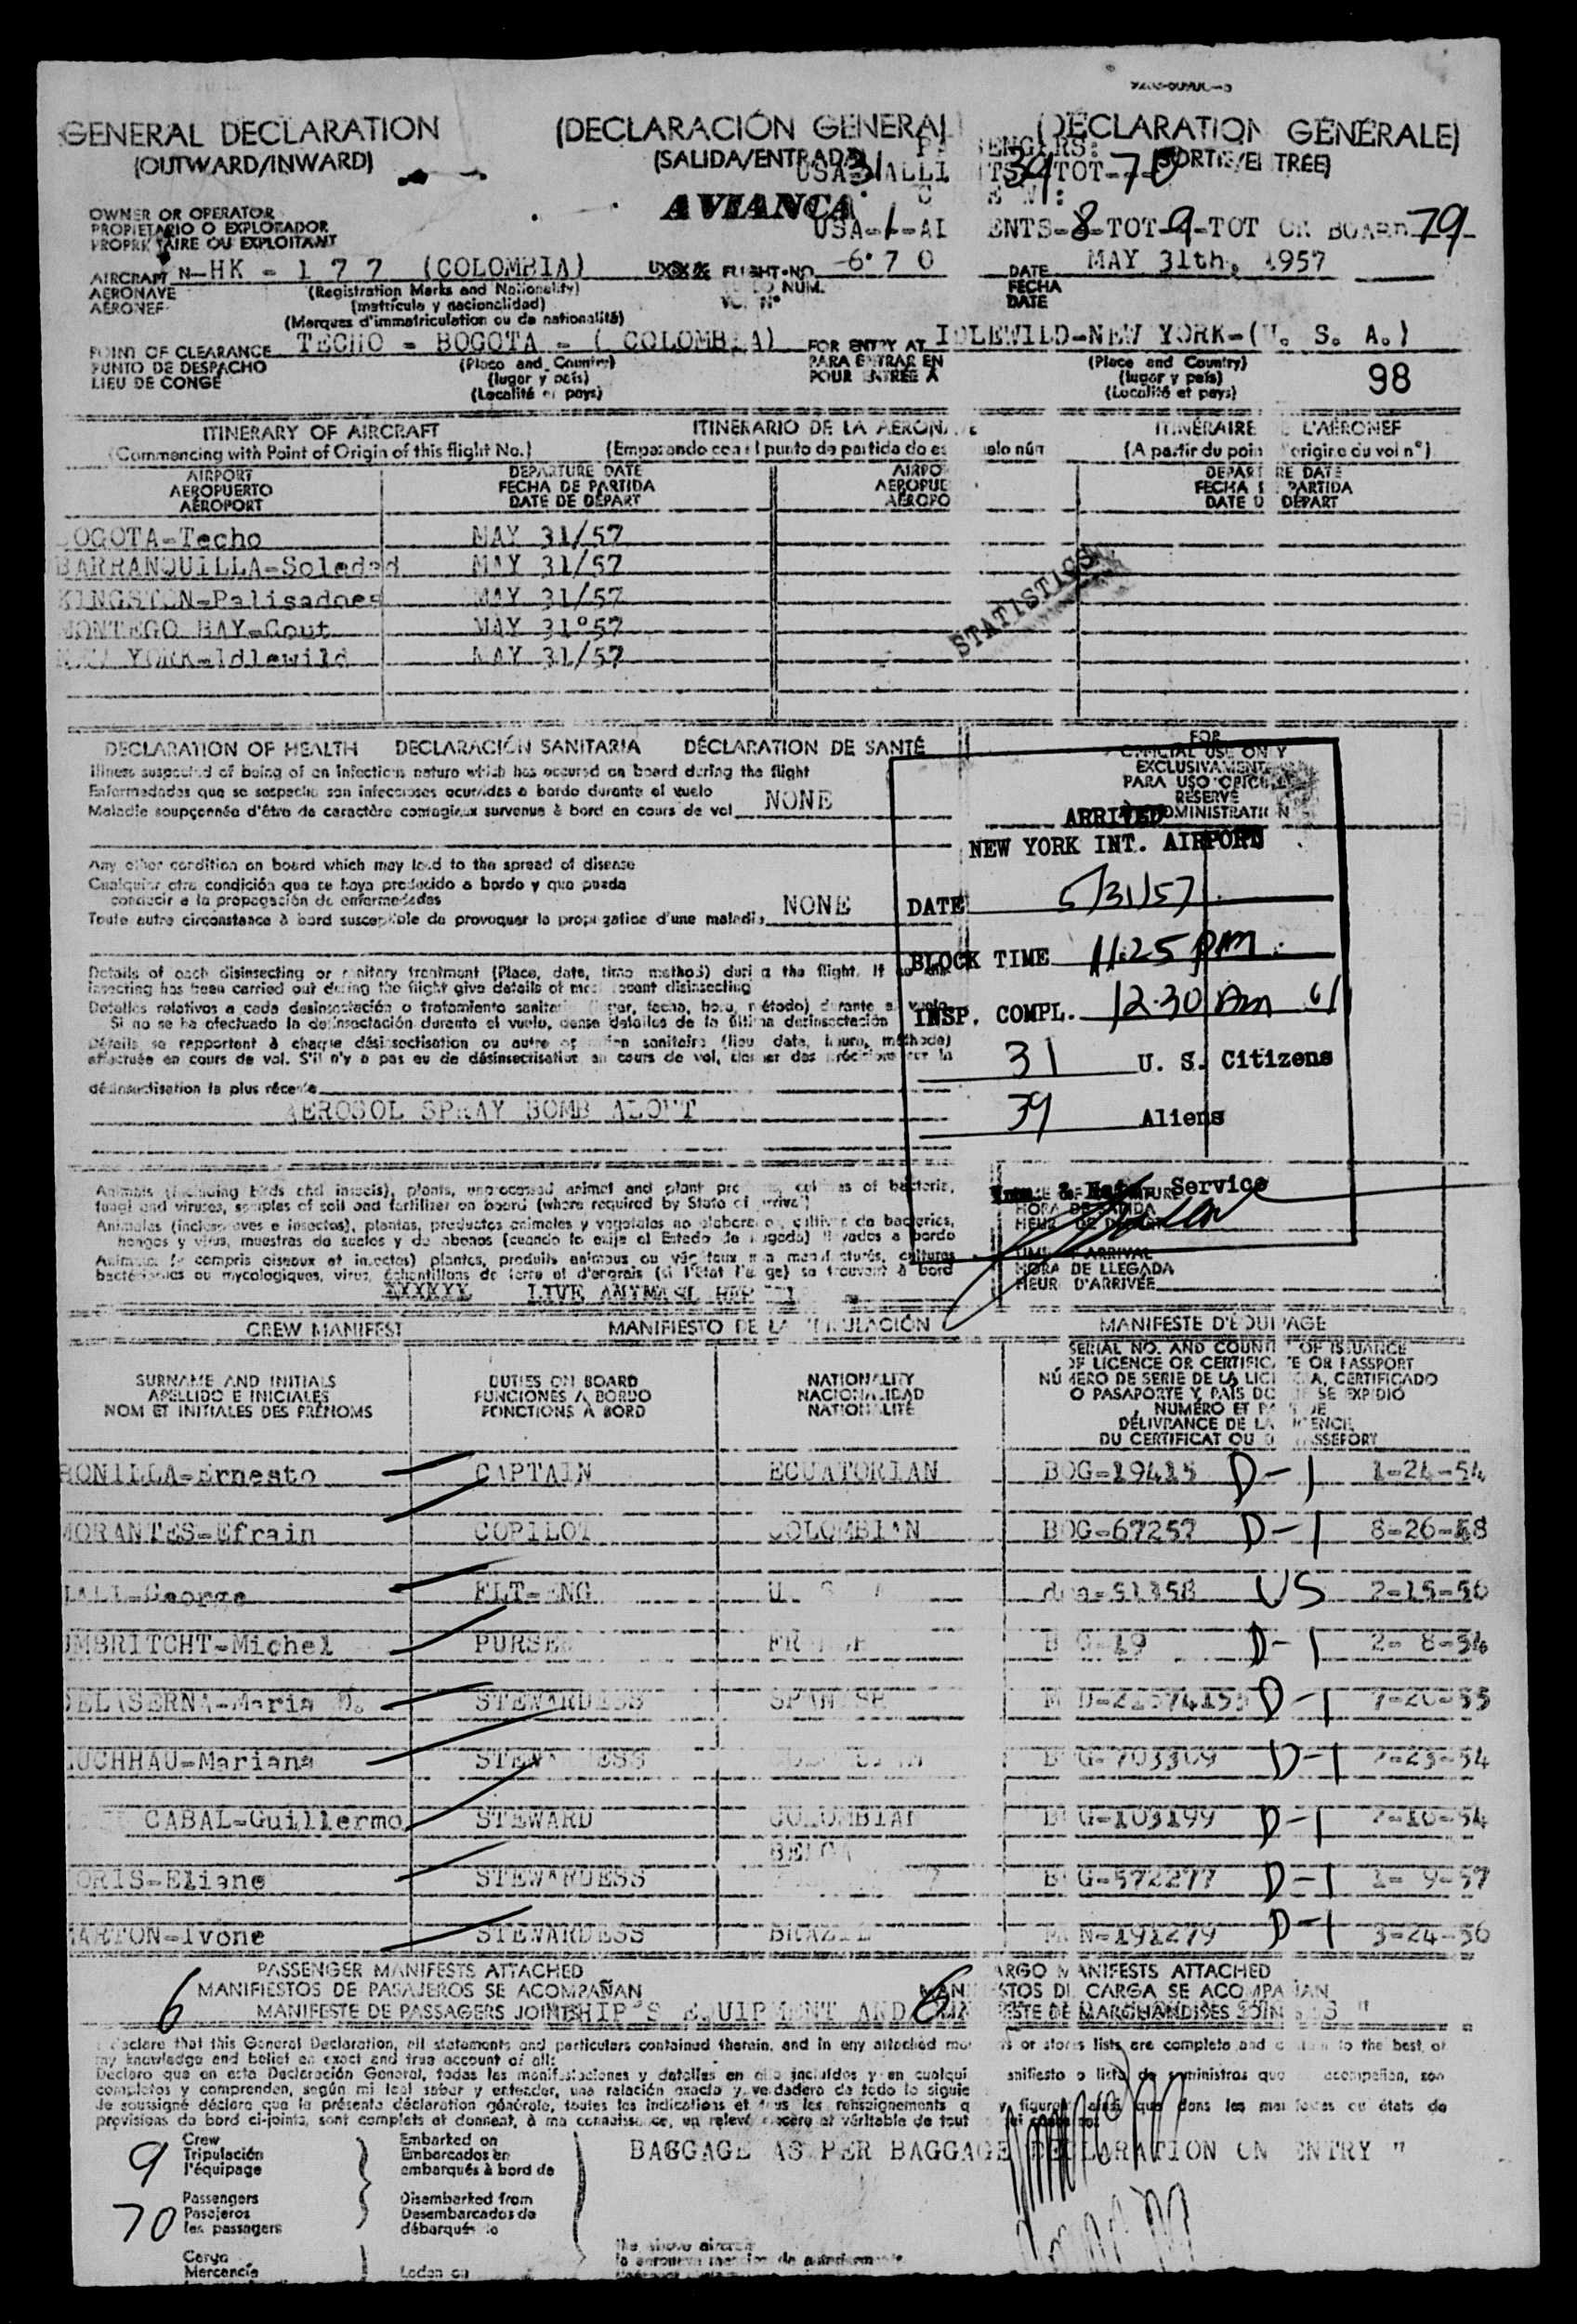 GENERAL DECLARATION (DECLARACIÓN GENERAL (DECLARATION GÉNÉRALE)
(OUTWARD/INWARD) (SALIDA/ENTRADA) (SORTIE/ENTREE)
USA-31 ALLI 39 TOT-70
AVIANCA
USA-1-AL ENTS-8-TOT-9-TOT ON BOARD 79
OWNER OR OPERATOR
PROPIETARIO O EXPLOTADOR
PROPRIETAIRE OU EXPLOITANT
AIRCRAFT N-HK-177 (COLOMBIA) FLIGHT-NO. 670 DATE MAY 31th, 1957
AERONAVE (Registration Marks and Nationality) FECHA
AÉRONEF (matrícula y nacionalidad) DATE
(Marques d'immatriculation ou de nationalité)
POINT OF CLEARANCE TECHO - BOGOTA - (COLOMBIA) FOR ENTRY AT IDLEWILD-NEW YORK-(U. S. A.)
PUNTO DE DESPACHO (Place and Country) PARA ENTRAR EN (Place and Country)
LIEU DE CONGÉ (lugar y país) POUR ENTRÉE A (lugar y país) 98
(Localité et pays) (Localité et pays)
ITINERARY OF AIRCRAFT ITINERARIO DE LA AERONAVE ITINÉRAIRE L'AÉRONEF
(Commencing with Point of Origin of this flight No.) (Empezando con el punto de partida de es uelo núm (A partir du poin origine du vol n°)
AIRPORT DEPARTURE DATE AIRPO DEPARTURE DATE
AEROPUERTO FECHA DE PARTIDA AEROPUE FECHA PARTIDA
AÉROPORT DATE DE DÉPART AÉROPO DATE D DÉPART
OGOTA-Techo MAY 31/57
BARRANQUILLA-Soledad MAY 31/57
KINGSTON-Palisadoes MAY 31/57
MONTEGO BAY-Gout MAY 31°57
NEW YORK-Idlewild MAY 31/57
STATISTICS
DECLARATION OF HEALTH DECLARACIÓN SANITARIA DÉCLARATION DE SANTÉ
Illness suspected of being of an infectious nature which has occured on board during the flight
Enfermedades que se sospecha son infecciosas ocurridas a bordo durante el vuelo
Maladie soupçonnée d'être de caractère contagieux survenue à bord en cours de vol NONE
Any other condition on board which may lead to the spread of disease
Cualquier otra condición que se haya producido a bordo y que pueda
conducir a la propagación de enfermedades
Toute autre circonstance à bord susceptible de provoquer la propagation d'une maladie NONE
FOR
OFFICIAL USE ONLY
EXCLUSIVAMENTE
PARA USO OFICIAL
RESERVÉ
ADMINISTRATION
ARRIVED
NEW YORK INT. AIRPORT
DATE 5/31/57
BLOCK TIME 11:25 pm
INSP. COMPL. 12:30 Am 6/1
31 U. S. Citizens
39 Aliens
Imm. & Nat. Service
Details of each disinsecting or sanitary treatment (Place, date, time method) during the flight. If no
insecting has been carried out during the flight give details of most recent disinsecting
Detalles relativos a cada desinsectación o tratamiento sanitario (lugar, fecha, hora, método) durante el vuelo
Si no se ha efectuado la desinsectación durante el vuelo, dense detalles de la última desinsectación
Détails se rapportant à chaque désinsectisation ou autre opération sanitaire (lieu, date, heure, méthode)
effectuée en cours de vol. S'il n'y a pas eu de désinsectisation au cours de vol, donner des précisions sur la
désinsectisation la plus récente
AEROSOL SPRAY BOMB ALOUT
Animals (including birds and insects), plants, unprocessed animal and plant pro cultures of bacteria,
fungi and viruses, samples of soil and fertilizer on board (where required by State of arrival)
Animales (incluso aves e insectos), plantas, productos animales y vegetales no elaborados, cultivos de bacterias,
hongos y virus, muestras de suelos y de abonos (cuando lo exija el Estado de llegada) llevados a bordo
Animaux (y compris oiseaux et insectes) plantes, produits animaux ou végétaux non manufacturés, cultures
bactériennes ou mycologiques, virus, échantillons de terre et d'engrais (si l'État l'exige) se trouvant à bord
LIVE
HORA DE SALIDA
HORA DE LLEGADA
HEURE D'ARRIVÉE
CREW MANIFEST MANIFIESTO DE LA TRIPULACIÓN MANIFESTE D'ÉQUIPAGE
SURNAME AND INITIALS DUTIES ON BOARD NATIONALITY SERIAL NO. AND COUNTRY OF ISSUANCE
APELLIDO E INICIALES FUNCIONES A BORDO NACIONALIDAD OF LICENCE OR CERTIFICATE OR PASSPORT
NOM ET INITIALES DES PRÉNOMS FONCTIONS À BORD NATIONALITÉ NÚMERO DE SERIE DE LA LICENCIA, CERTIFICADO
O PASAPORTE Y PAÍS DONDE SE EXPIDIÓ
NUMÉRO ET PAYS DE
DÉLIVRANCE DE LA LICENCE
DU CERTIFICAT OU PASSEPORT
RONILLA-Ernesto CAPTAIN ECUATORIAN BOG-19415 D-1 1-24-54
MORANTES-Efrain COPILOT COLOMBIAN BOG-67257 D-1 8-26-
George FLT-ENG U. S. A 51358 US 2-15-56
UMBRITCHT-Michel PURSER B G-19 D-1 2- 8-54
DELASERNA-Maria D. STEWARDESS SPANISH D-1 7-20-55
UCHHAU-Mariana STEWARDESS B G-703309 D-1 7-23-54
CABAL-Guillermo STEWARD COLOMBIAN B G-103199 D-1 7-10-54
ORIS-Eliane STEWARDESS BELGA B G-572277 D-1 1- 9-57
MARTON-Ivone STEWARDESS BRAZIL N-191279 D-1 3-24-56
PASSENGER MANIFESTS ATTACHED CARGO MANIFESTS ATTACHED
6 MANIFIESTOS DE PASAJEROS SE ACOMPAÑAN 6 MANIFIESTOS DE CARGA SE ACOMPAÑAN
MANIFESTE DE PASSAGERS JOINTS SHIP'S EQUIPMENT AND MANIFESTE DE MARCHANDISES JOINTS "
I declare that this General Declaration, all statements and particulars contained therein, and in any attached ma s or stores lists, are complete and to the best of
my knowledge and belief an exact and true account of all:
Declaro que en esta Declaración General, todas las manifestaciones y detalles en ella incluidos y en cualqui anifiesto o lista de suministros que acompañan, son
completos y comprenden, según mi leal saber y entender, una relación exacta y verdadera de todo lo siguie
Je soussigné déclare que la présente déclaration générale, toutes les indications et tous les renseignements q y figurent ainsi que dans les ou états de
provisions de bord ci-joints, sont complets et donnent, à ma connaissance, un relevé sincère et véritable de tout
9 Crew Embarked on
Tripulación Embarcados en BAGGAGE AS PER BAGGAGE DECLARATION ON ENTRY "
l'équipage embarqués à bord de
70 Passengers Disembarked from
Pasajeros Desembarcados de
les passagers débarqués
the above aircraft
Cargo
Mercancía